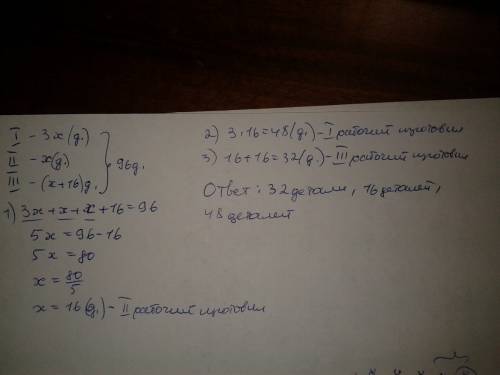 I – 3x (д.)
II – x (д.)
III – (x+16) д.
} 96 д.
1) 3x + x + x + 16 = 96
5x = 96 – 16
5x = 80
x = 80/5
x = 16 (д.) – II рабочий изготовил
2) 3 · 16 = 48 (д.) – I рабочий изготовил
3) 16 + 16 = 32 (д.) – III рабочий изготовил
Ответ: 32 детали, 16 деталей,
48 деталей